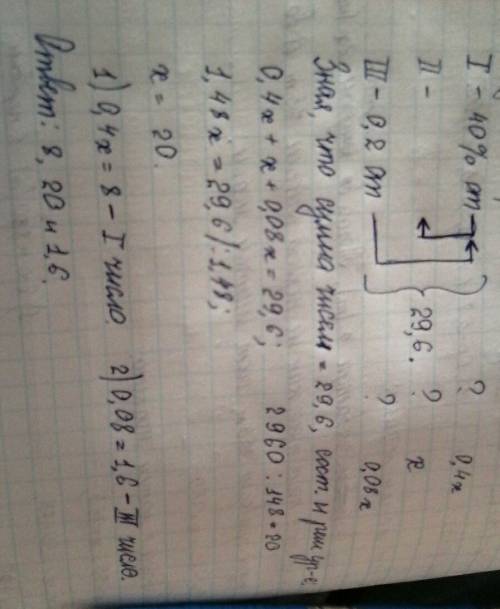 I - 40% от ? 0,4x
II - 29,6. ? x
III - 0,2 от ? 0,08x
Зная, что сумма чисел = 29,6, сост. и реш. ур-е:
0,4x + x + 0,08x = 29,6; 2960 : 148 = 20
1,48x = 29,6 / : 1,48;
x = 20.
1) 0,4x = 8 - I число. 2) 0,08 = 1,6 - III число.
Ответ: 8, 20 и 1,6.